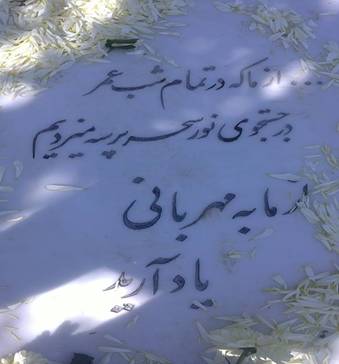 ... از ما که در تمام شب عمر
در جستجوی نور سحر پرسه میزدیم
از ما به مهربانی
یاد آرید